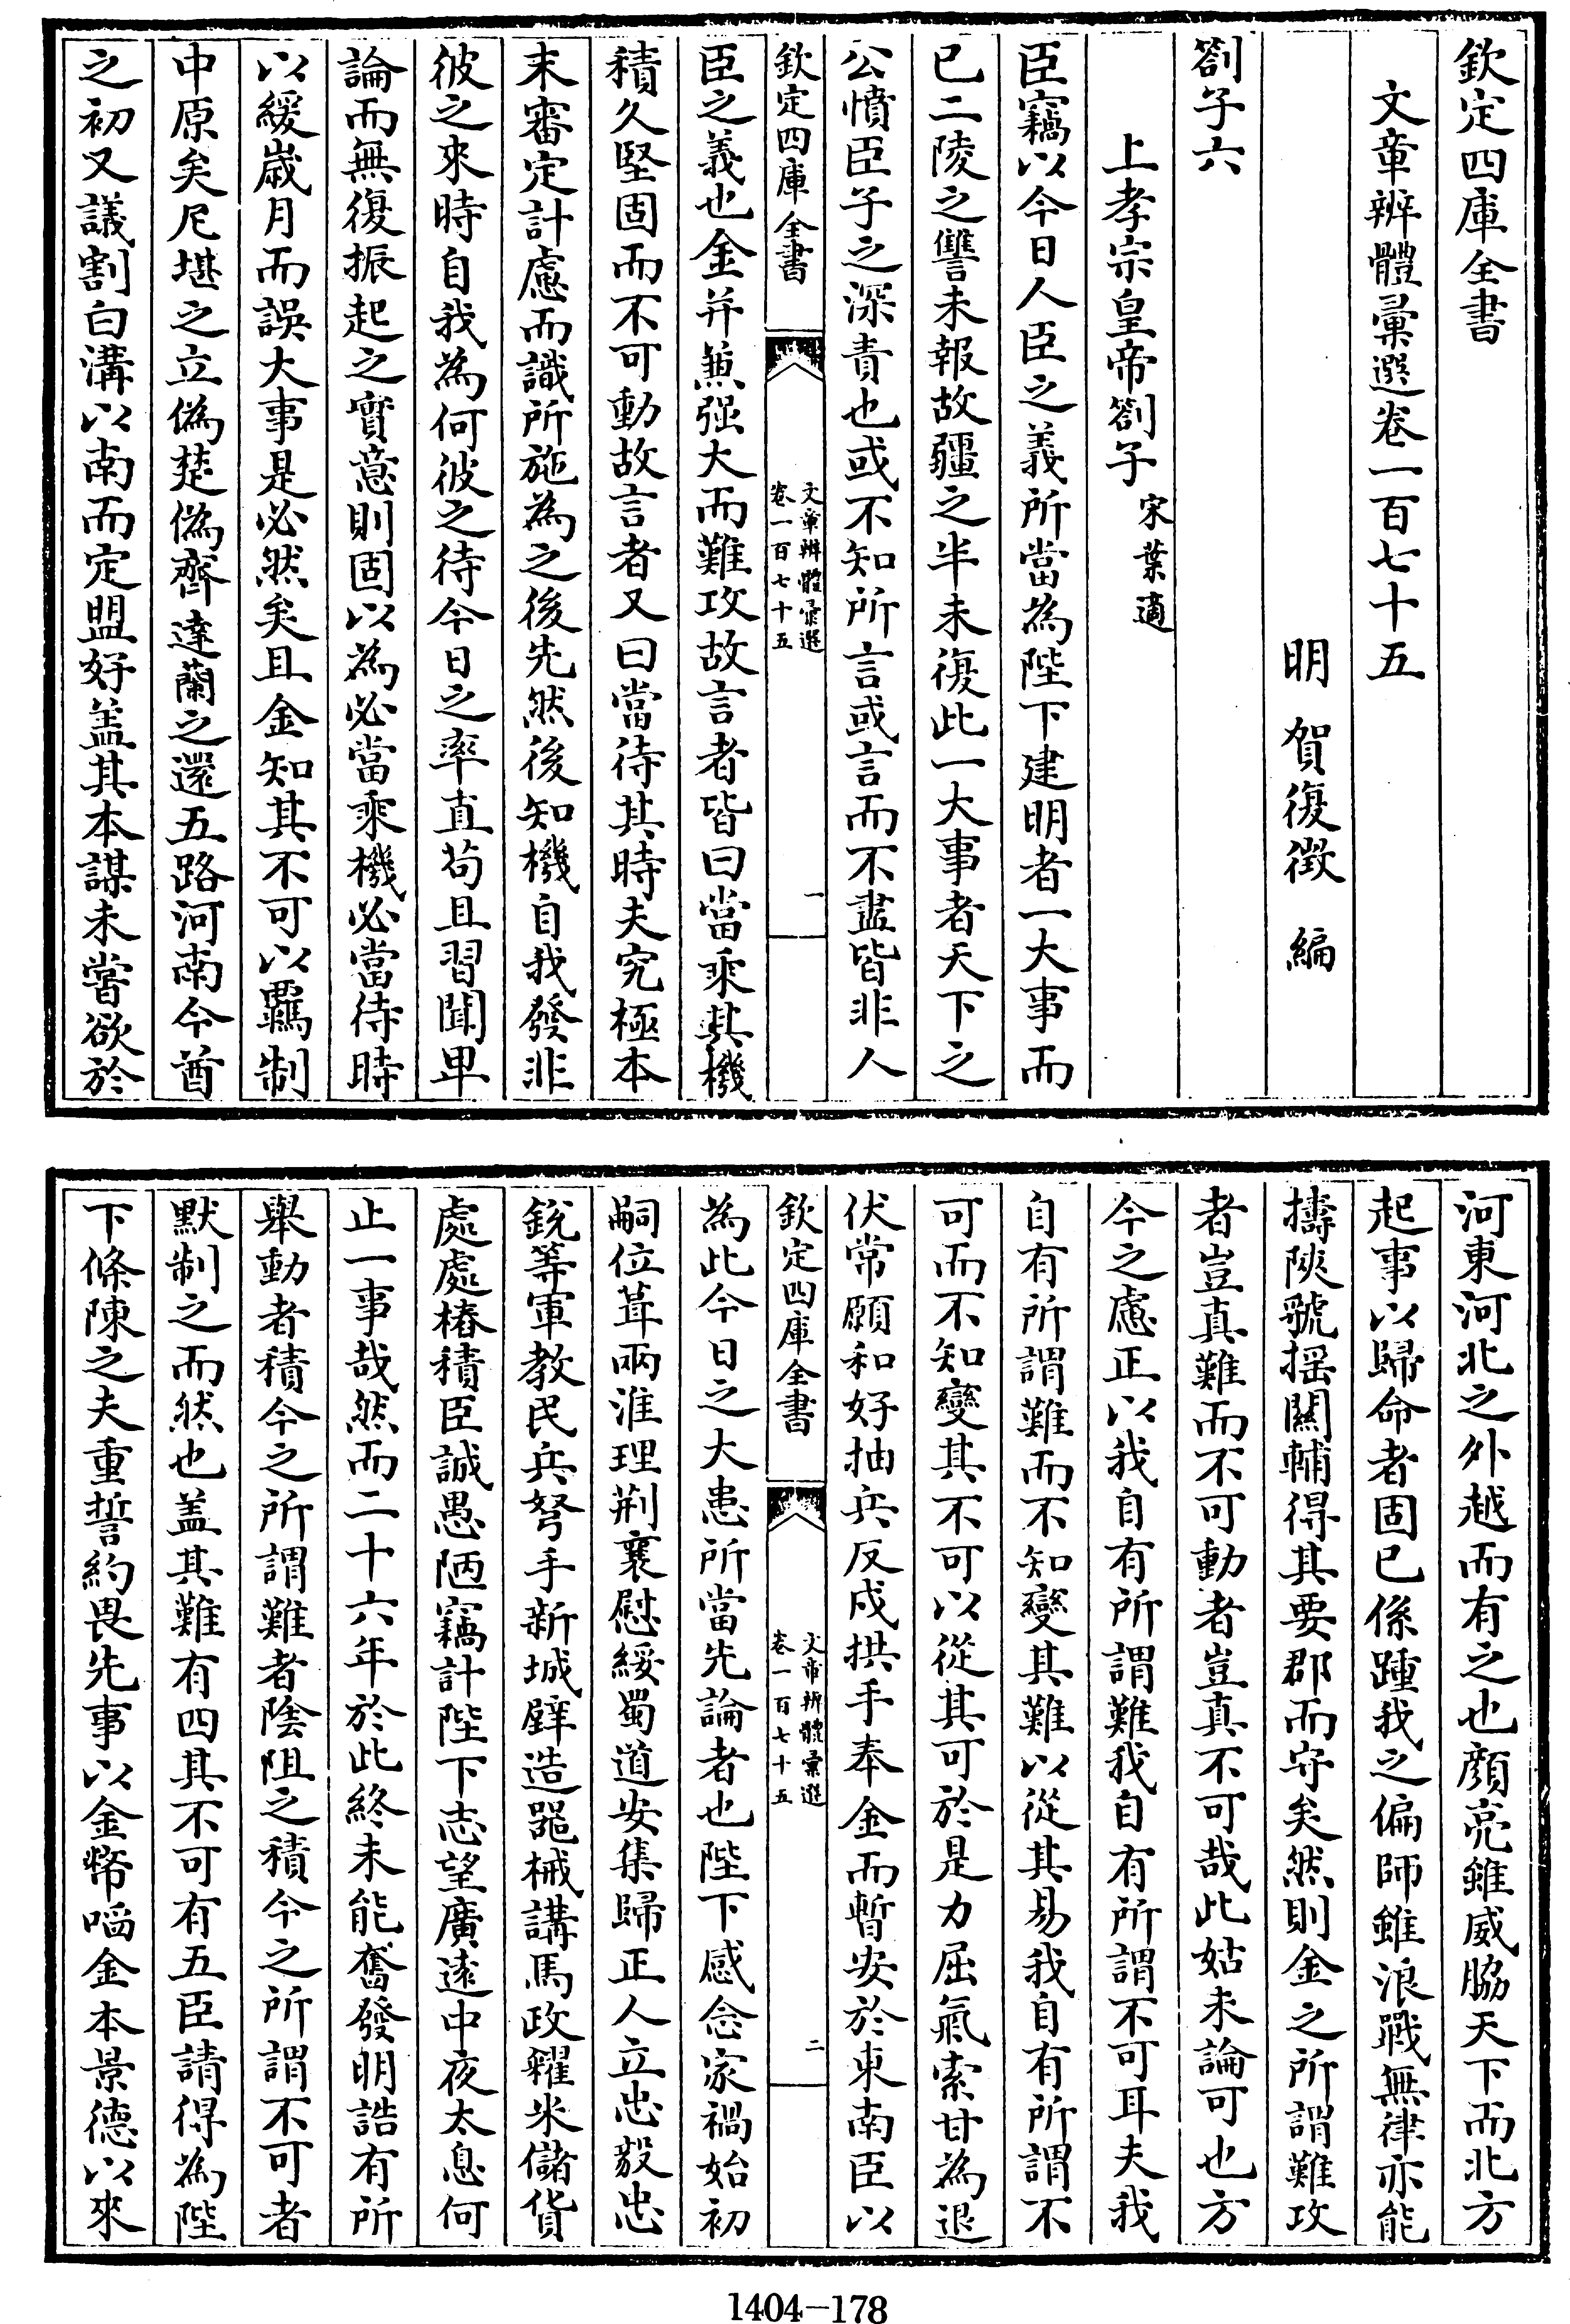 欽定四庫全書
文章辨體彙選卷一百七十五
明 賀復徵 編
劄子六
上孝宗皇帝劄子 宋葉適
臣竊以今日人臣之義所當為陛下建明者一大事而
已二陵之讐未報故疆之半未復此一大事者天下之
公憤臣子之深責也或不知所言或言而不盡皆非人
欽定四庫全書
文章辨體彙選
卷一百七十五
一
臣之義也金并兼强大而難攻故言者皆曰當乘其機
積久堅固而不可動故言者又曰當待其時夫究極本
末審定計慮而識所施為之後先然後知機自我發非
彼之來時自我為何彼之待今日之率直苟且習聞卑
論而無復振起之實意則固以為必當乘機必當待時
以緩歲月而誤大事是必然矣且金知其不可以羈制
中原矣尼堪之立偽楚偽齊達蘭之還五路河南今酋
之初又議割白溝以南而定盟好盖其本謀未嘗欲於
河東河北之外越而有之也顔亮雖威脇天下而北方
起事以歸命者固已係踵我之偏師雖浪戰無律亦能
擣陝虢揺關輔得其要郡而守矣然則金之所謂難攻
者豈真難而不可動者豈真不可哉此姑未論可也方
今之慮正以我自有所謂難我自有所謂不可耳夫我
自有所謂難而不知變其難以從其易我自有所謂不
可而不知變其不可以從其可於是力屈氣索甘為退
伏常願和好抽兵反戍拱手奉金而暫安於東南臣以
欽定四庫全書
文章辨體彙選
卷一百七十五
二
為此今日之大患所當先論者也陛下感念家禍始初
嗣位葺兩淮理荆襄慰綏蜀道安集歸正人立忠毅忠
銳等軍教民兵弩手新城壁造噐械講馬政糴米儲貨
處處樁積臣誠愚陋竊計陛下志望廣逺中夜太息何
止一事哉然而二十六年於此終未能奮發明詔有所
舉動者積今之所謂難者陰阻之積今之所謂不可者
默制之而然也盖其難有四其不可有五臣請得為陛
下條陳之夫重誓約畏先事以金幣啗金本景德以來
1404—178